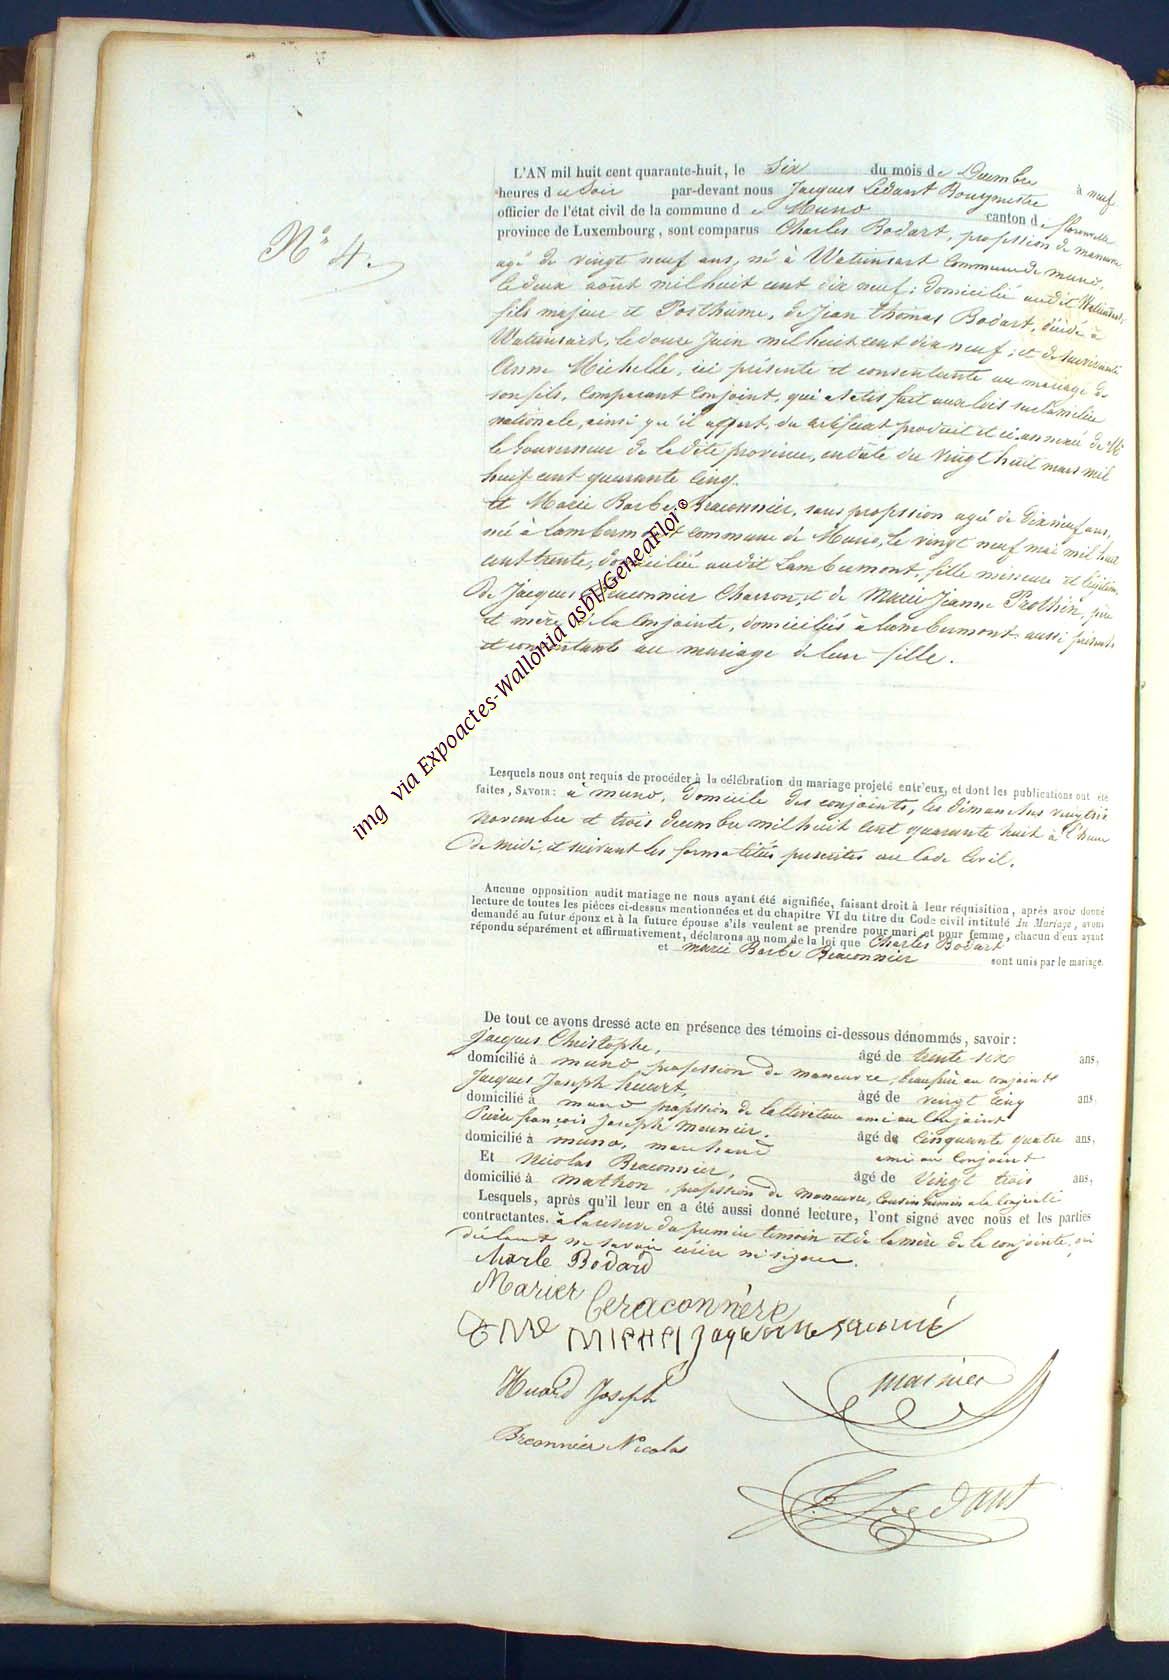 N° 4.
L'AN mil huit cent quarante-huit, le Six du mois de Decembre à neuf
heures d u Soir par-devant nous Jacques Ledant Bourgmestre
officier de l'état civil de la commune d e Muno canton d e florenville
province de Luxembourg, sont comparus Charles Bodart, profession de manœuvre
agé de vingt neuf ans, né à Watrinsart Commune de muno,
le deux août mil huit cent dix neuf; domicilié audit Watrinsart,
fils majeur et Posthume, de Jean thomas Bodart, décédé à
Watrinsart, le douze Juin mil huit cent dix neuf; et de survivante
Anne Michelle, ici présente et consentante au mariage de
son fils, Comparant Conjoint, qui a satis fait aux lois sur la milice
nationale, ainsi qu'il appert, du certificat produit et ci annexé de Mr
le Gouverneur de la dite province, en date du vingt huit mars mil
huit cent quarante Cinq.
et Marie Barbe Braconnier, sans profession agée de Dix neuf ans,
née à Lambermont commune de Muno, le vingt neuf mai mil huit
cent trente, domiciliée audit Lambermont, fille mineure et légitime
De Jacques Braconnier Charron, et de Marie Jeanne Prothin, père
et mère de la Conjointe, domiciliés à Lambermont aussi présents
et consentants au mariage de leur fille.
Lesquels nous ont requis de procéder à la célébration du mariage projeté entr'eux, et dont les publications ont été
faites, SAVOIR: à muno, domicile des conjoints, les dimanches vingt six
novembre et trois decembre mil huit cent quarante huit à l'heure
De midi, et suivant les formalités prescrites au Code Civil.
Aucune opposition audit mariage ne nous ayant été signifiée, faisant droit à leur réquisition, après avoir donné
lecture de toutes les pièces ci-dessus mentionnées et du chapitre VI du titre du Code civil intitulé du Mariage, avons
demandé au futur époux et à la future épouse s'ils veulent se prendre pour mari et pour femme, chacun d'eux ayant
répondu séparément et affirmativement, déclarons au nom de la loi que Charles Bodart
et marie Barbe Braconnier sont unis par le mariage.
De tout ce avons dressé acte en présence des témoins ci-dessous dénommés, savoir:
Jacques Christophe, âgé de trente six ans,
domicilié à muno profession de manœuvre, beaufrère au conjoint
Jacques Joseph huart, âgé de vingt cinq ans,
domicilié à muno profession de ami au Conjoint
Pierre françois Joseph meunier. âgé de Cinquante quatre ans,
domicilié à muno, marchand ami au Conjoint
Et Nicolas Braconnier, âgé de Vingt trois ans,
domicilié à mathon, profession de manœuvre, Cousin Germin a la Conjointe
Lesquels, après qu'il leur en a été aussi donné lecture, l'ont signé avec nous et les parties
contractantes. à la reserve du premier temoin et de la mère de la conjointe, qui
déclarent ne savoir écrire ni signer.
Charle Bodard
Marier beraconnière
Huard Joseph
Braconnier Nicolas
J Ledant
img via Expoactes-Wallonia asbl/GeneaFlor©